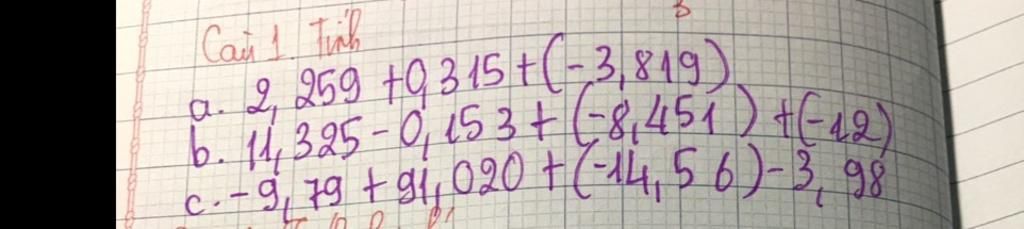 Câu 1. Tính
a. 2,259 + 0,315 + (-3,819)
b. 11,325 - 0,153 + (-8,451) + (-12)
c. -9,79 + 91,020 + (-14,56) - 3,98